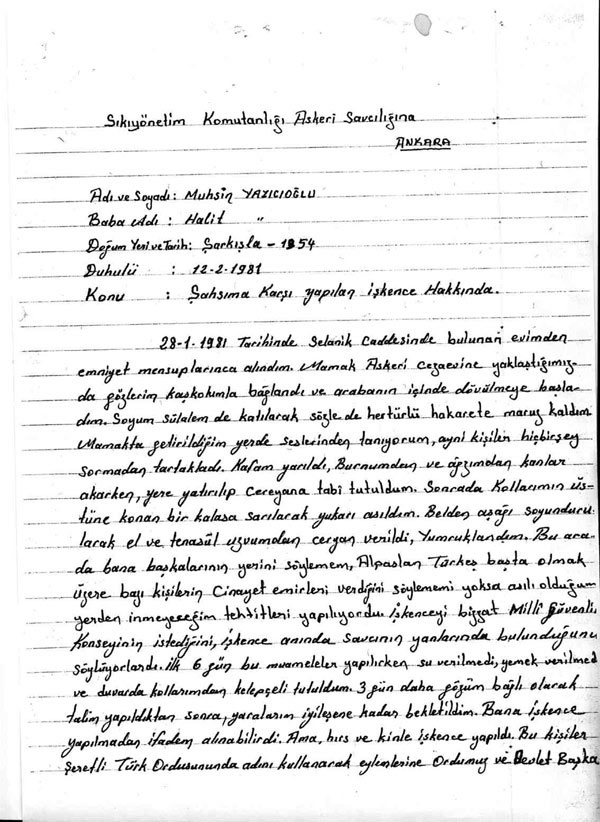 Sıkıyönetim Komutanlığı Askeri Savcılığına
ANKARA
Adı ve Soyadı: Muhsin YAZICIOĞLU
Baba Adı : Halit "
Doğum Yeri ve Tarih: Şarkışla - 1954
Duhulü : 12-2-1981
Konu : Şahsıma Karşı yapılan işkence Hakkında.
28-1-1981 Tarihinde Selanik Caddesinde bulunan evimden
emniyet mensuplarınca alındım. Mamak Askeri Cezaevine yaklaştığımız-
da gözlerim kaşkolumla bağlandı ve arabanın içinde dövülmeye başla-
dım. Soyum sülalem de katılarak sözle de hertürlü hakarete maruz kaldım
Mamakta getirildiğim yerde seslerinden tanıyorum, ayni kişiler hiçbirşey
sormadan tartakladı. Kafam yarıldı, Burnumdan ve ağzımdan kanlar
akarken, yere yatırılıp Cereyana tabi tutuldum. Sonrada Kollarımın üs-
tüne konan bir kalasa sarılarak yukarı asıldım. Belden aşağı soyunduru-
larak el ve tenasül uzvumdan ceryan verildi, Yumruklandım. Bu ara-
da bana başkalarının yerini söylemem, Alpaslan Türkeş başta olmak
üzere bazı kişilerin Cinayet emirleri verdiğini söylememi yoksa asılı olduğum
yerden inmeyeceğim tehtitleri yapılıyordu. İşkenceyi bizzat Milli Güvenli
Konseyinin istediğini, işkence anında Savcının yanlarında bulunduğunu
söylüyorlardı. İlk 6 gün bu muameleler yapılırken su verilmedi, yemek verilmed
ve duvarda kollarımdan kelepçeli tutuldum. 3 gün daha gözüm bağlı olarak
talim yapıldıktan sonra, yaralarım iyileşene kadar bekletildim. Bana işkence
yapılmadan ifadem alınabilirdi. Ama, hırs ve kinle işkence yapıldı. Bu kişiler
Şerefli Türk Ordusununda adını kullanarak eylemlerine Ordumuz ve Devlet Başka